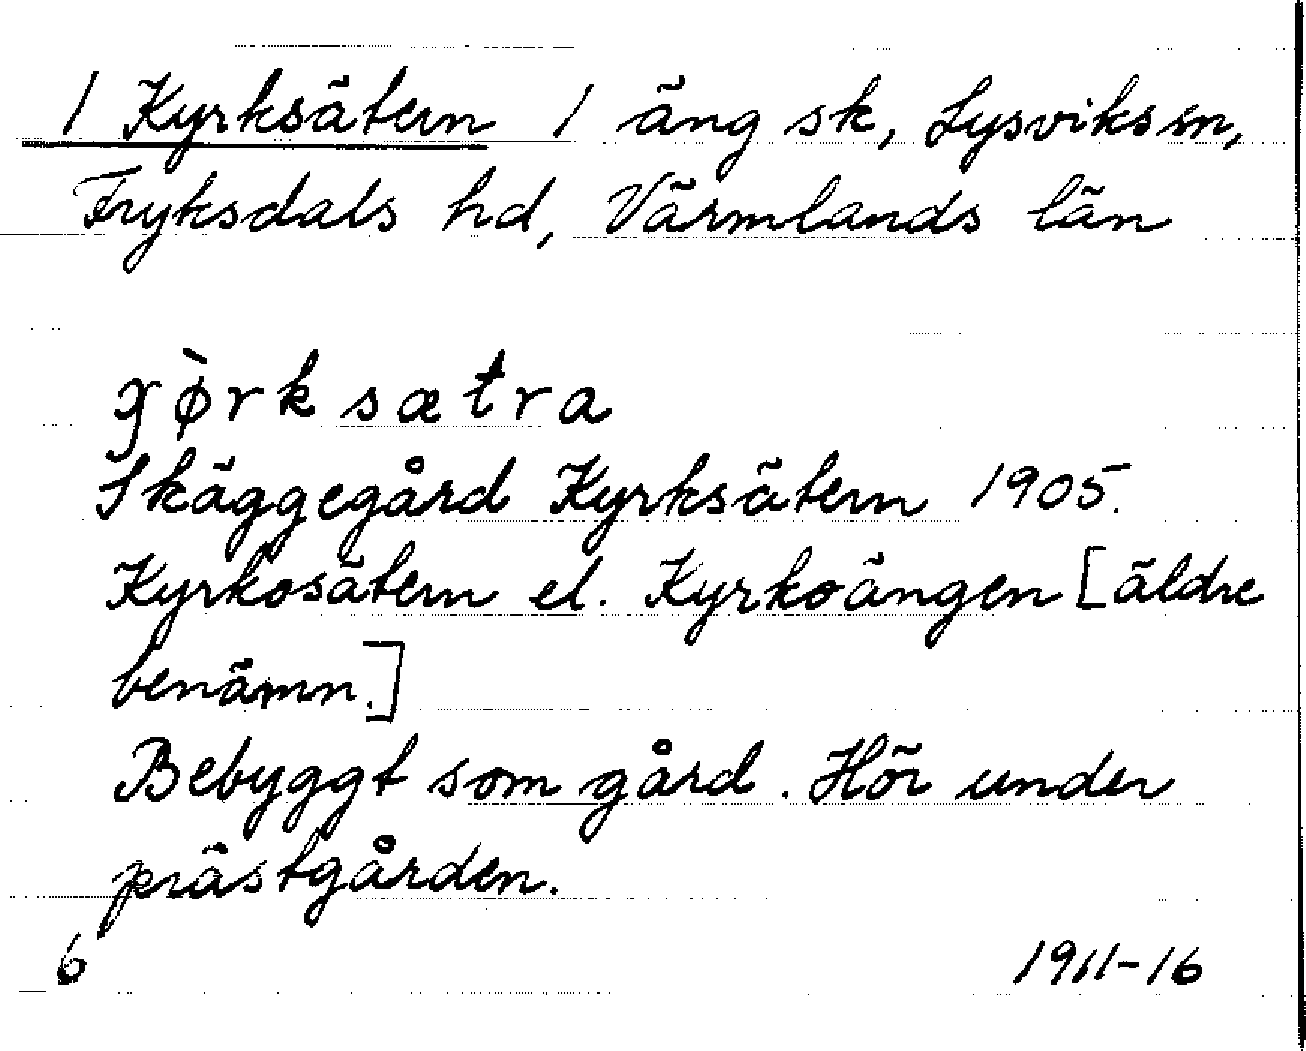 / Kyrksätern / äng sk, Lysviks sn,
Fryksdals hd, Värmlands län
ɡø̀rksætra
Skäggegård Kyrksätern 1905.
Kyrkosätern el. Kyrkoängen [äldre
benämn.]
Bebyggt som gård. Hör under
prästgården.
6 1911-16